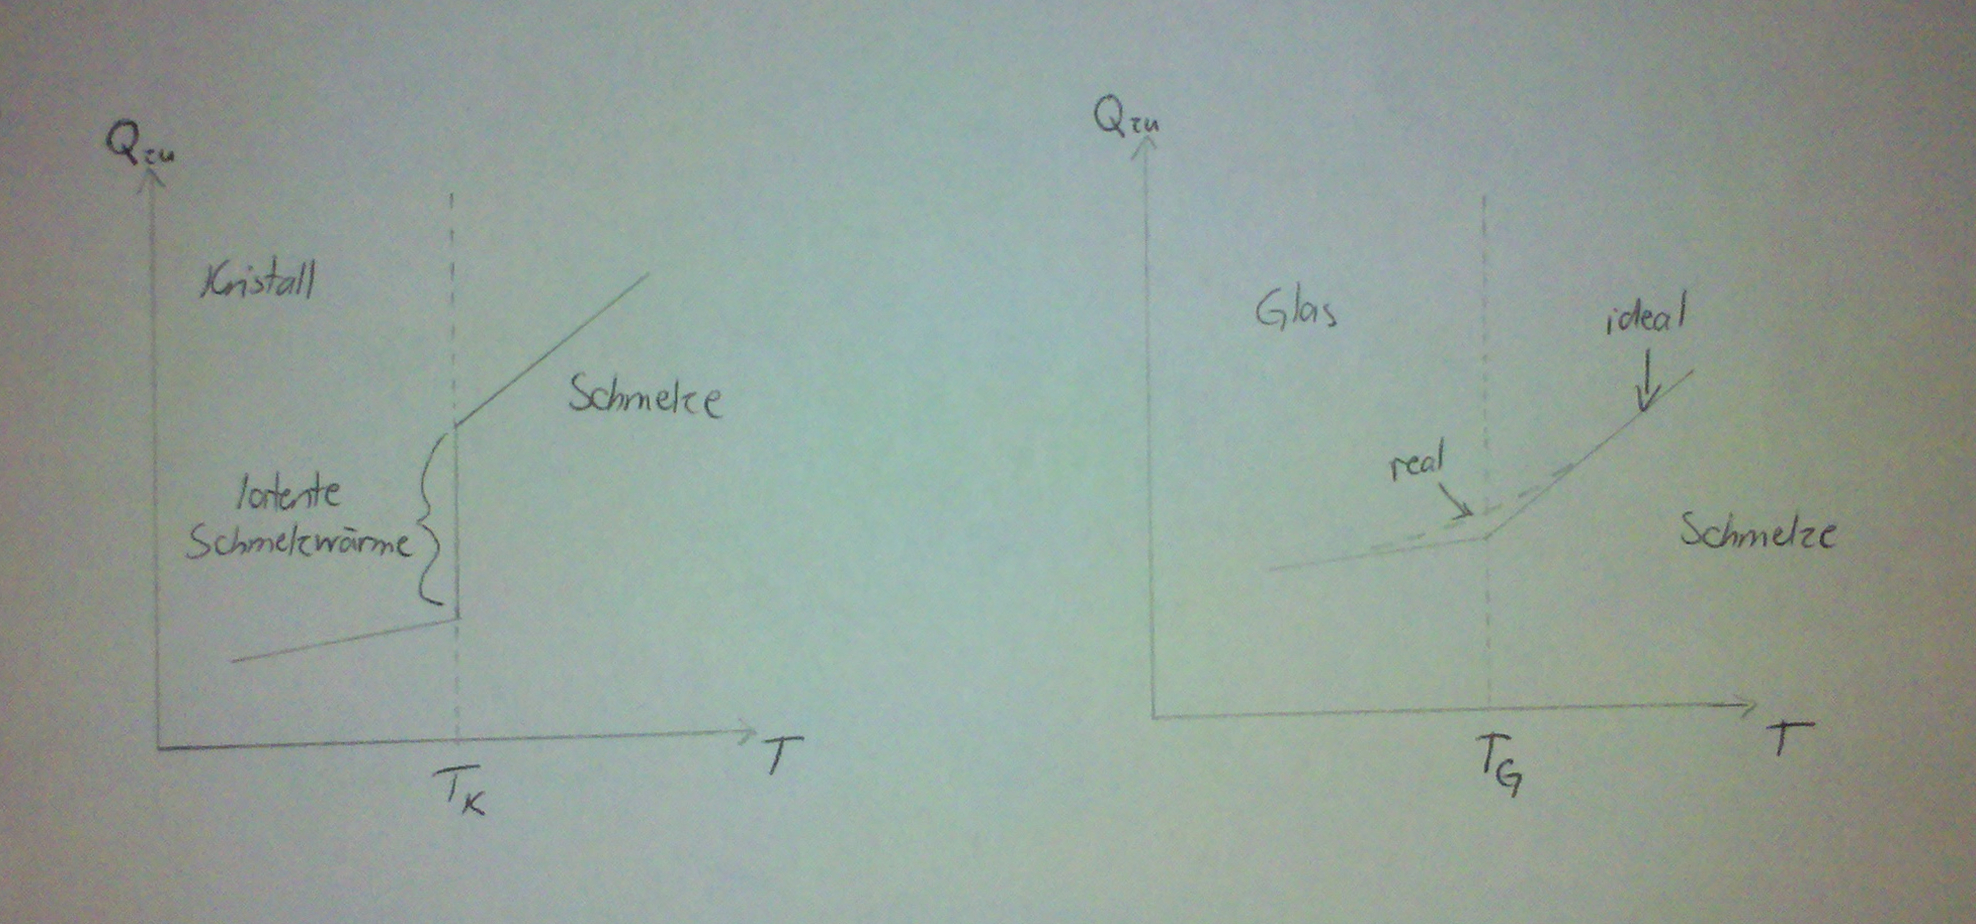 Qzu
Kristall
Schmelze
latente
Schmelzwärme
T
TK
Qzu
Glas
ideal
real
Schmelze
T
TG